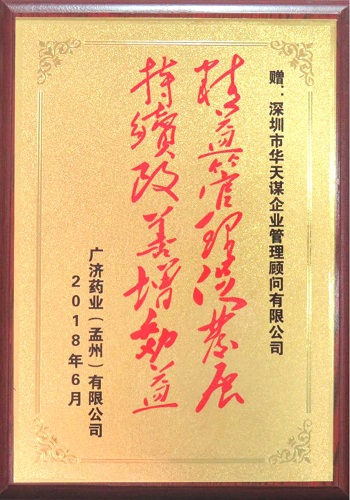 赠：深圳市华天谋企业管理顾问有限公司
精益管理促发展
持續改善增效益
广济药业（孟州）有限公司
2018年6月